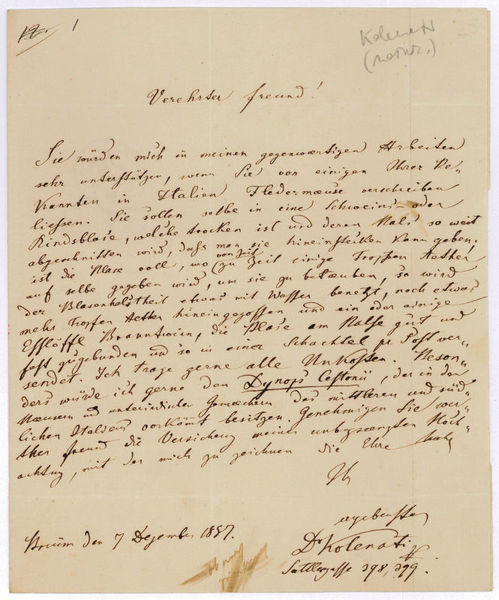 1
Kolenati
(natur.)
Verehrter Freund!
Sie würden mich in meinen gegenwaertigen Arbeiten
sehr unterstützen, wenn Sie von einigen Ihrer Be-
kannten in Italien Fledermaeuse verschreiben
liessen. Sie sollen selbe in eine Schweins- oder
Rindsblase, welche trocken ist und deren Hals so weit
abgeschnitten wird, dass man sie hineinstellen kann geben,
ist die Blase voll, wo von Zeit
zu Zeit einige Tropfen Aether
auf selbe gegeben wird, um sie zu betäuben, so wird
der Blasenhalstheil etwas mit Wasser benetzt, noch etwas
mehr Tropfen Aether hineingegossen und ein oder einige
Esslöffel Branntwein, die Blase am Halse gut und
fest zugebunden und so in einer Schachtel pr Post ver-
sendet. Ich trage gerne alle Unkosten. Beson-
ders würde ich gerne den Dynops Cestonii, der in den
Maeuern und unterirdischen Gemaechern des mittleren und süd-
lichen Italiens vorkömt besitzen. Genehmigen Sie ver-
ther Freund die Versicherg meiner unbegraenzten Hoch-
achtung, mit der mich zu zeichnen die Ehre habe
Ihr
ergebenster
Dr Kolenati
Brünn den 7 Dezember 1857.
Sattlergasse 298, 299.